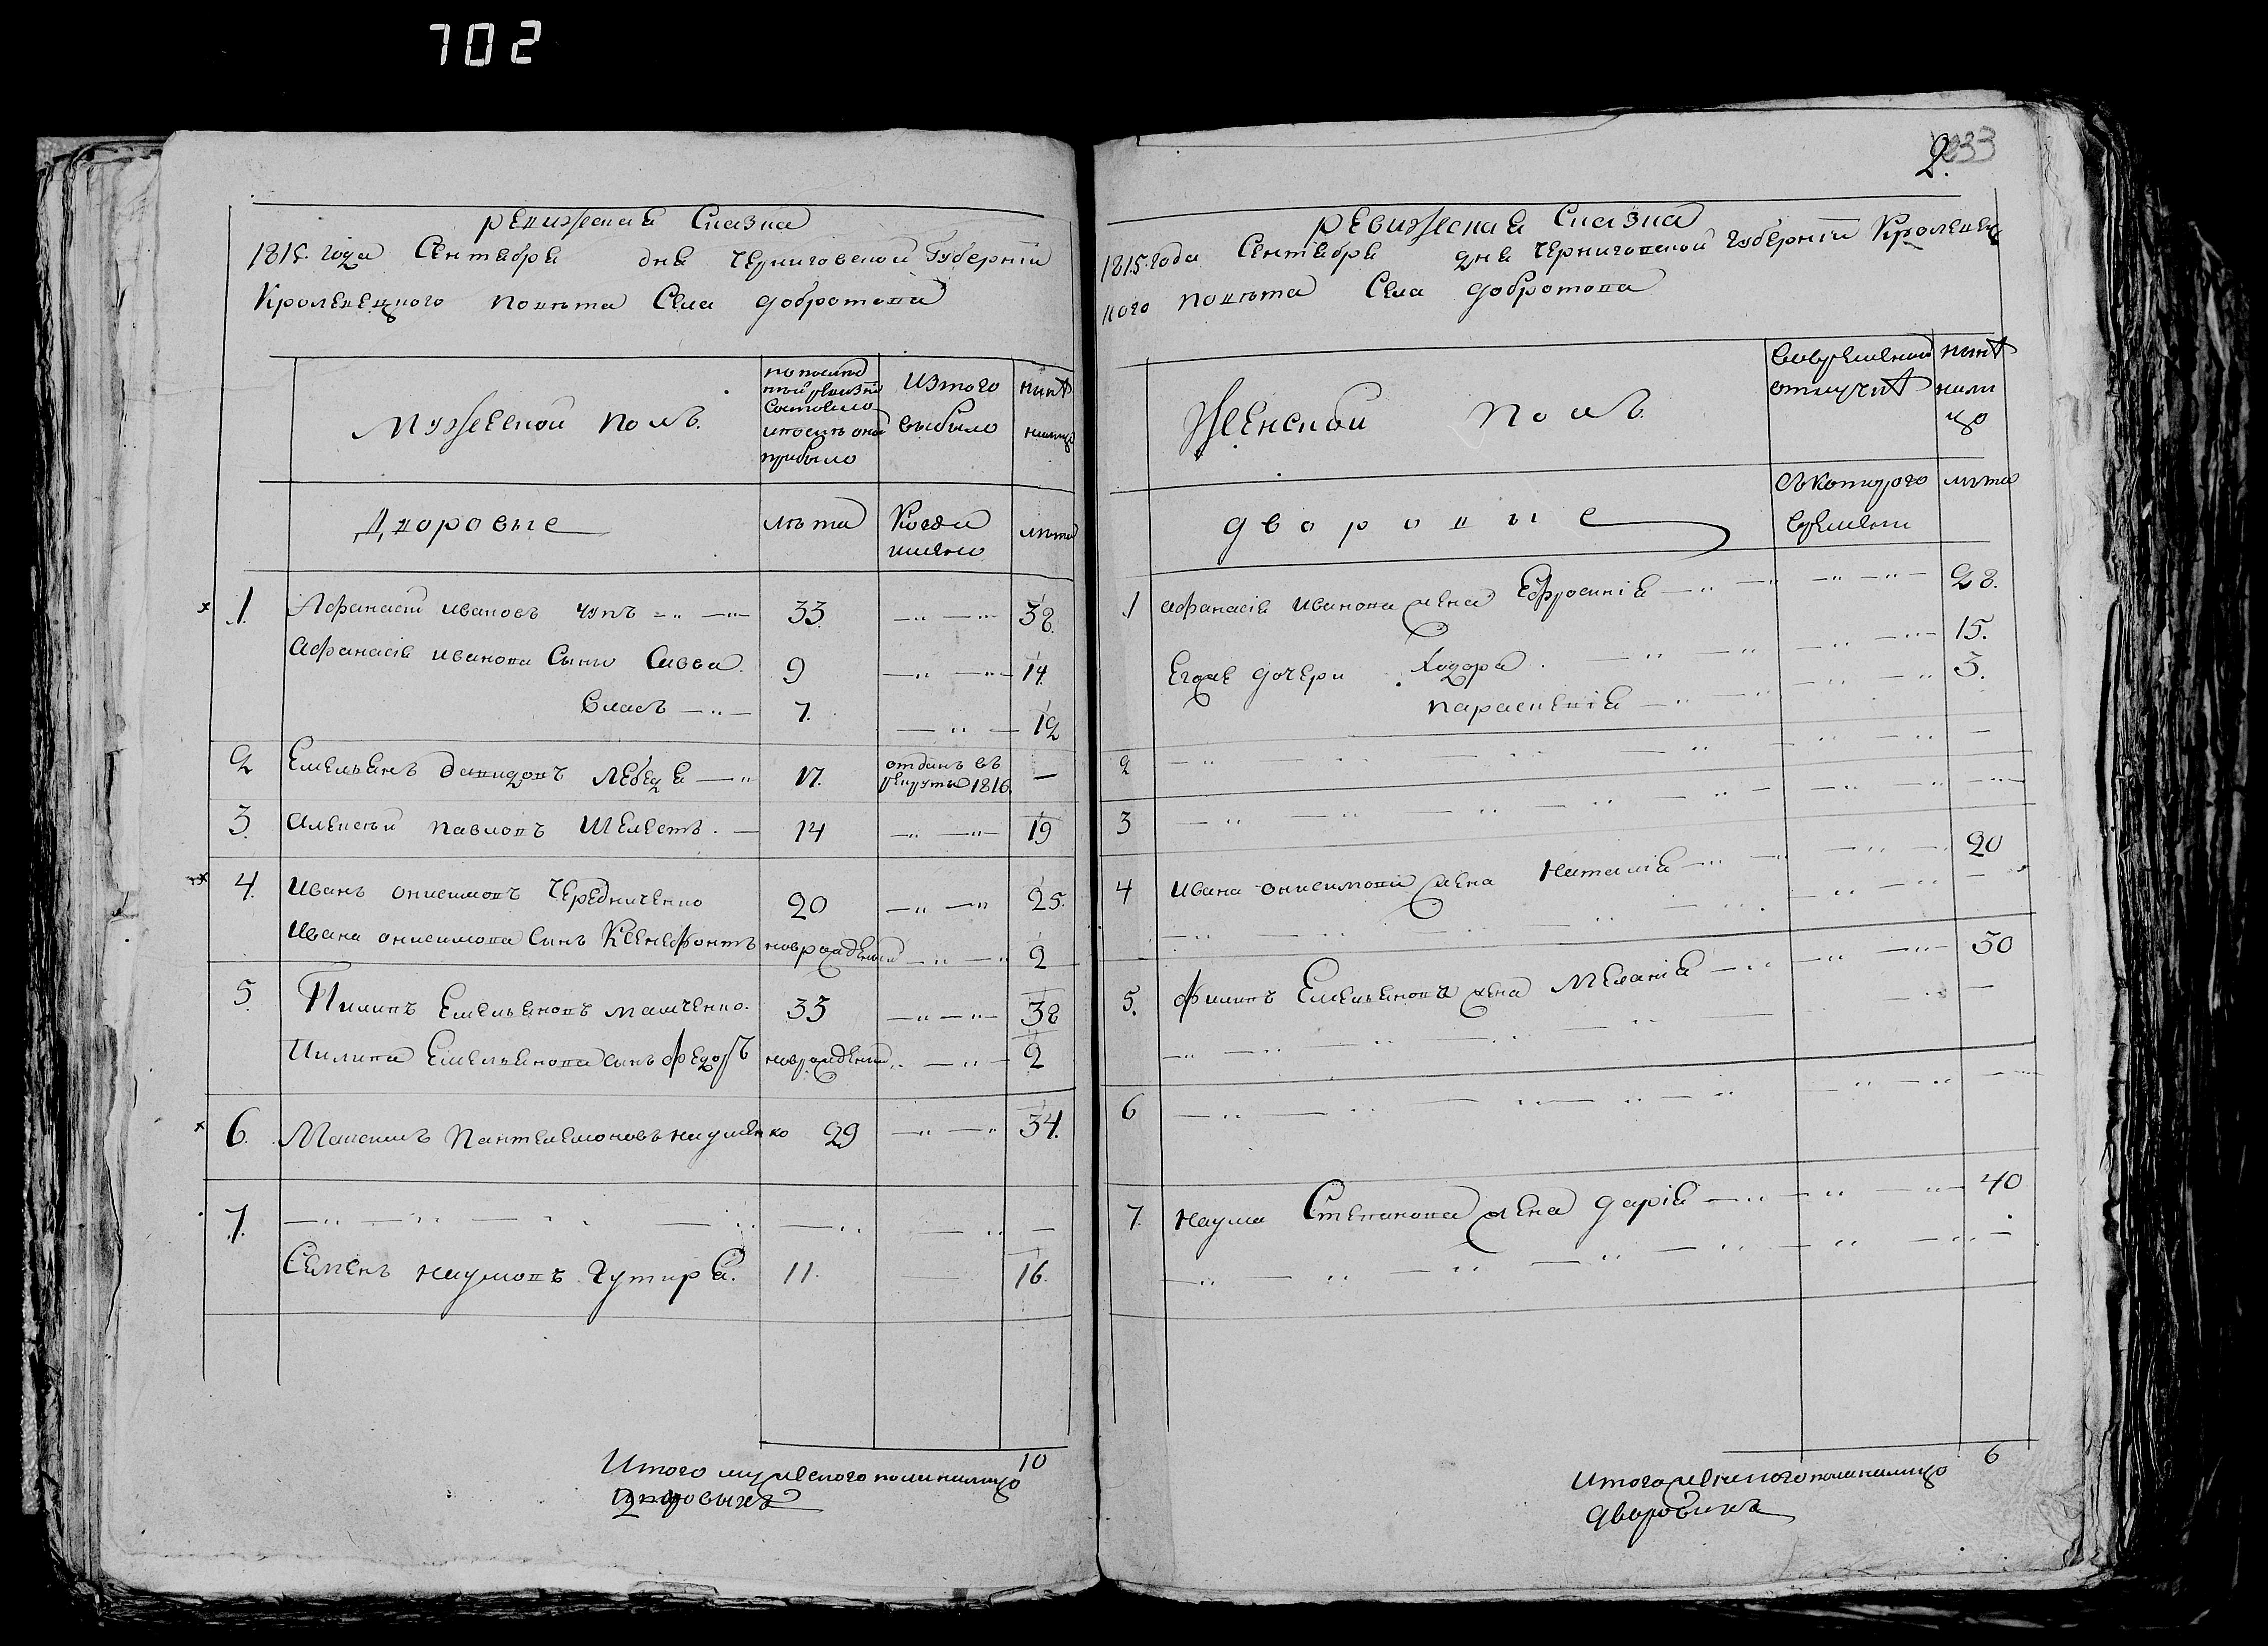 702
ревижская Сказка
1815. года Сентября дня Черниговской Губернїи
Кролевецкого повѣта Села Добротова
Мужеской полъ.
по последней ревизїи состояло и после оной прибыло
Изтого выбыло
нынѣ на лицо
Дворовые
лѣта
Когда имянно
лѣта
1. Афанасий Ивановъ Чупъ 33. 38.
Афанасїя Иванова Сыны Савва. 9 14.
Власъ 7. 12
2 Емельянъ Давидовъ Лебедя 17. отданъ въ рекруты 1816. —
3. Алексѣй Павловъ Шелестъ. 14 19
4. Иванъ Онисимовъ Чередниченко 20 25.
Ивана Онисимова Сынъ Ксенефонтъ новрожденый 2
5. Пилипъ Емельяновъ Мамченко. 33 38
Пилипа Емельянова сынъ Федоръ новрожденый 2
6. Максимъ Пантелемоновъ Науменко 29 34.
7. —
Семенъ Наумовъ Чутиря. 11. 16.
10
Итого мужеского пола налицо
дворовыхъ
2. 833
ревижская Сказка
1815. года Сентября дня Черниговской Губернїи Кролевец
кого повѣта Села Добротова
Женской полъ
во временной отлучкѣ
нынѣ на лицо
дворовые
съ которого времени
лѣта
1 Афанасїя Иванова жена Ефросинїя 28.
Егоже дочери Ходора. 15.
Параскевїя 3.
2 —
3 —
4 Ивана Онисимова жена Наталїя 20
5. Филипъ Емельянова жена Меланїя 30
6 —
7. Наума Степанова жена Дарїя 40
6
Итого женского пола налицо
дворовихъ